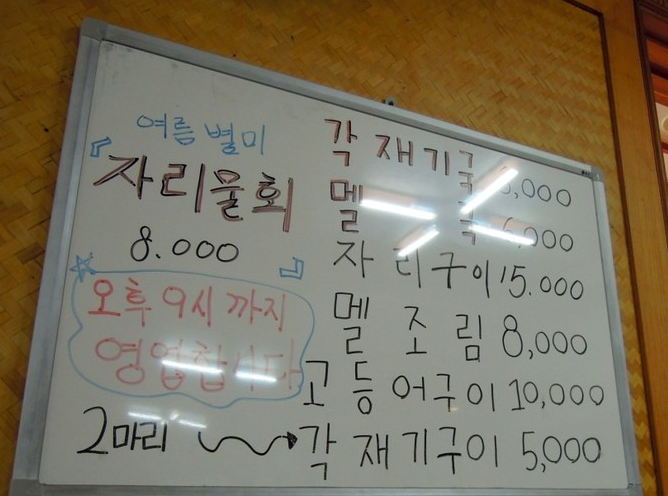 여름 별미
『자리물회
8.000 』
오후 9시 까지
영업합니다
각재기국 ,000
멜 국 6,000
자리구이 15.000
멜 조림 8,000
고등어구이 10,000
2마리 → 각재기구이 5,000